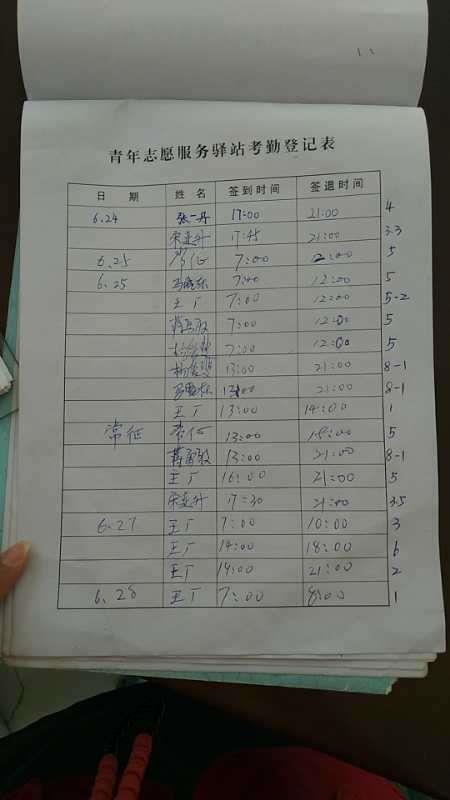 青年志愿服务驿站考勤登记表
日 期 姓 名 签到时间 签退时间
6.24 张一丹 17:00 21:00 4
17:45 21:00 3.3
6.25 常征 7:00 12:00 5
6.25 7:00 12:00 5
王厂 7:00 12:00 5-2
7:00 12:00 5
7:00 12:00 5
13:00 21:00 8-1
13:00 21:00 8-1
王厂 13:00 14:00 1
常征 常征 13:00 18:00 5
13:00 21:00 8-1
王厂 16:00 21:00 5
17:30 21:00 3.5
6.27 王厂 7:00 10:00 3
王厂 14:00 18:00 6
王厂 19:00 21:00 2
6.28 王厂 7:00 8:00 1